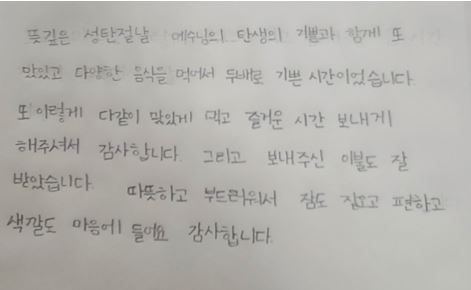 뜻깊은 성탄절날 예수님의 탄생의 기쁨과 함께 또
맛있고 다양한 음식을 먹어서 두배로 기쁜 시간이었습니다.
또 이렇게 다같이 맞있게 먹고 즐거운 시간 보내게
해주셔서 감사합니다. 그리고 보내주신 이불도 잘
받았습니다. 따뜻하고 부드러워서 잠도 잘오고 편하고
색깔도 마음에 들어요 감사합니다.